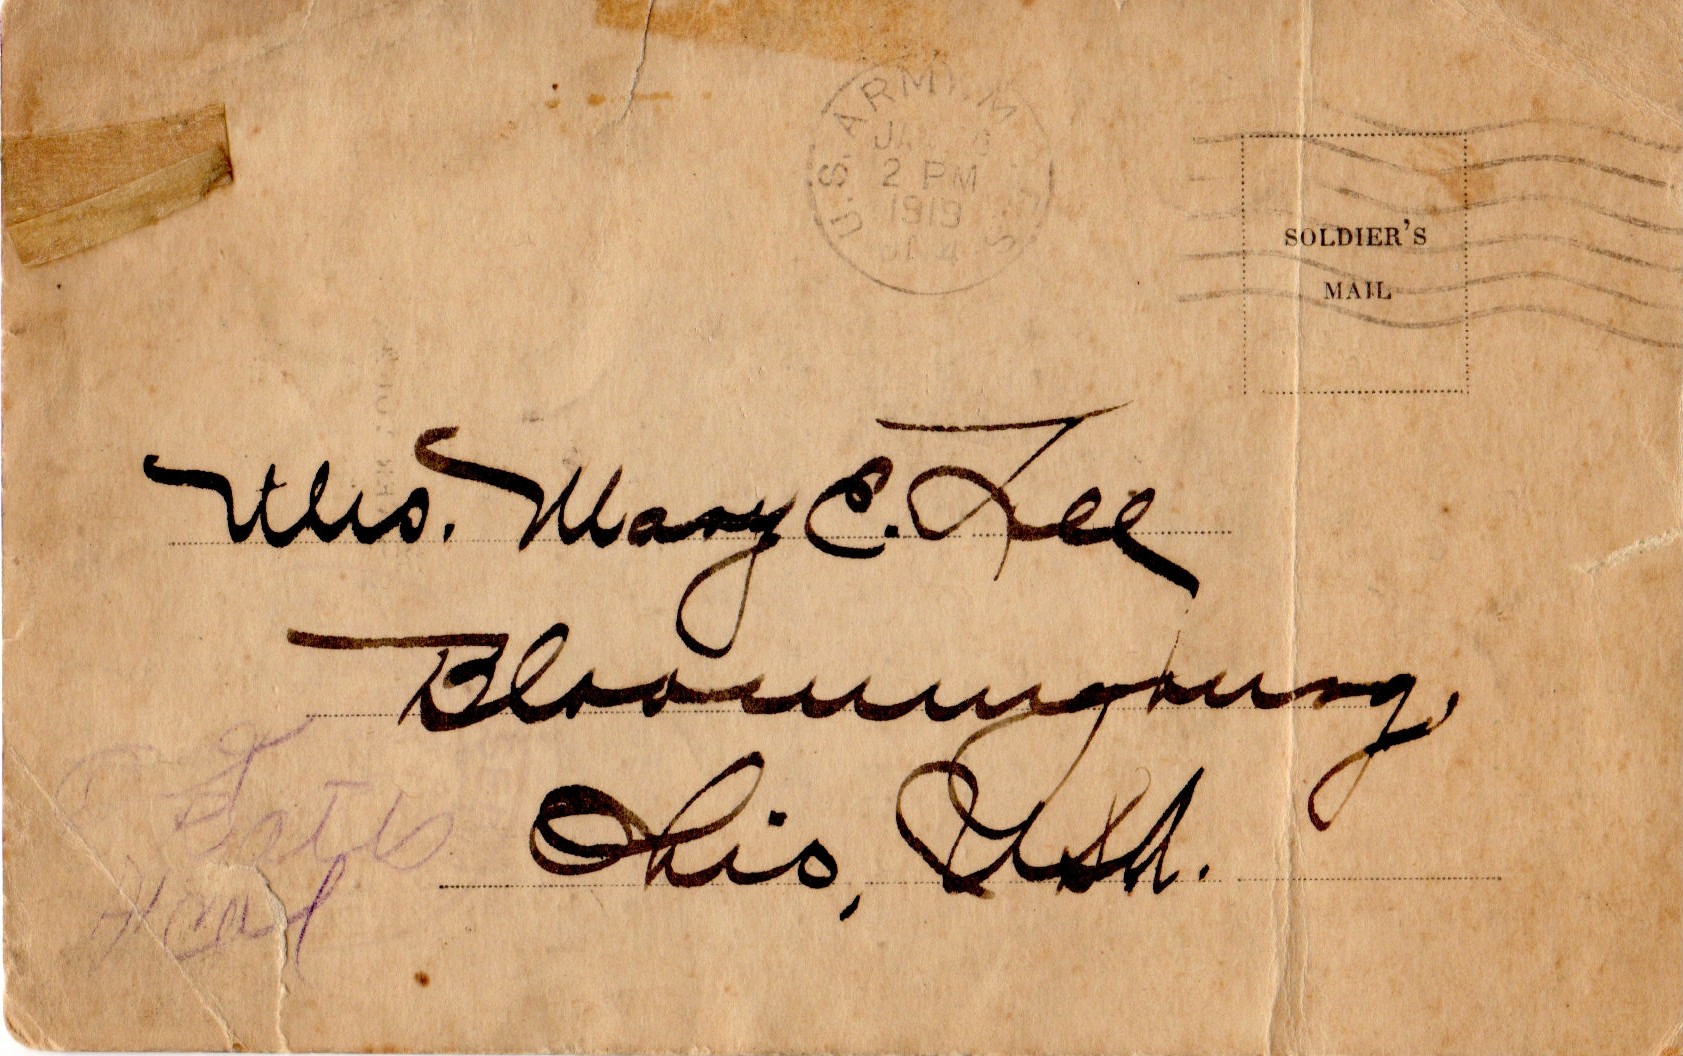 U.S. ARMY M
2 PM
1919
SOLDIER'S
MAIL
Mrs. Mary E. Lee
Bloomingburg,
Ohio, USA.